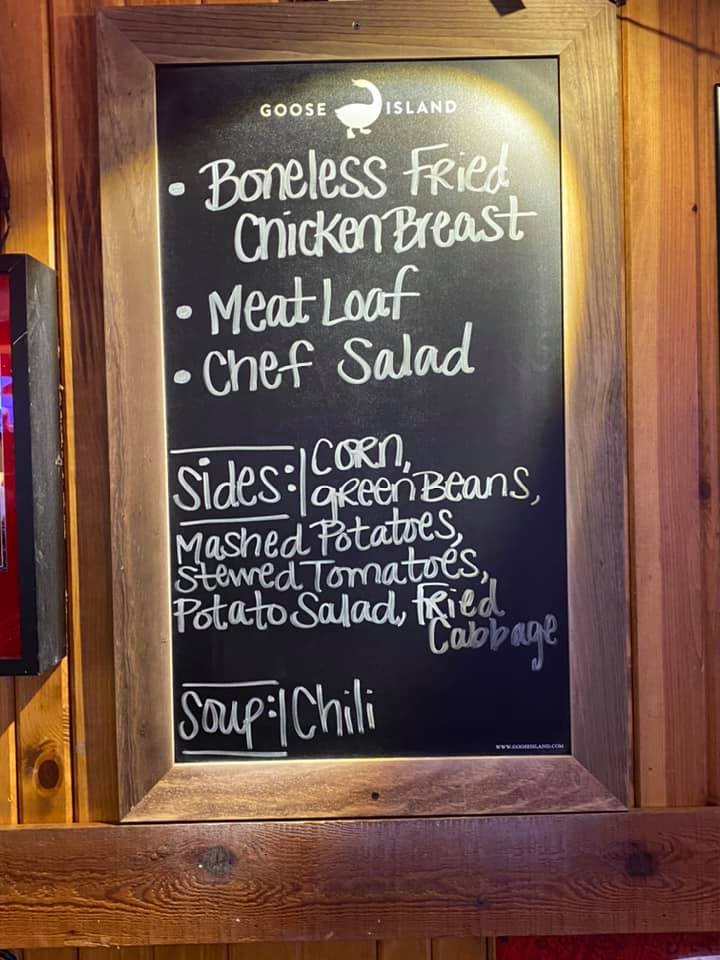 GOOSE ISLAND
• Boneless Fried
Chicken Breast
• Meat Loaf
• Chef Salad
Sides: Corn,
green Beans,
Mashed Potatoes,
Stewed Tomatoes,
Potato Salad, Fried
Cabbage
Soup: Chili
WWW.GOOSEISLAND.COM